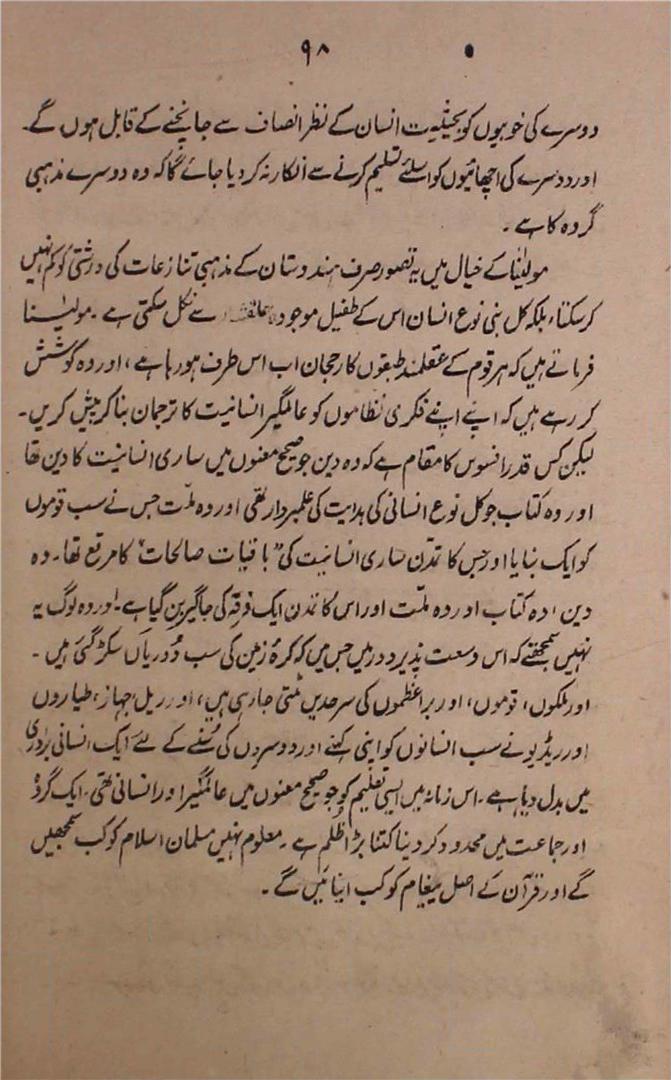 ۹۸
دوسرے کی خوبیوں کو بحیثیت انسان کے نظر انصاف سے جانچنے کے قابل ہوں گے۔
اور دوسرے کی اچھائیوں کو اسلئے تسلیم کرنے سے انکار نہ کر دیا جائے گا کہ وہ دوسرے مذہبی
گروہ کا ہے۔
مولیٰنا کے خیال میں یہ تصور صرف ہندوستان کے مذہبی تنازعات کی درشتی کو کم نہیں
کر سکتا، بلکہ کل بنی نوع انسان اس کے طفیل موجودہ سے نکل سکتی ہے۔ مولیٰنا
فرماتے ہیں کہ ہر قوم کے عقلمند طبقوں کا رجحان اب اس طرف ہو رہا ہے، اور وہ کوشش
کر رہے ہیں کہ اپنے اپنے فکری نظاموں کو عالمگیر انسانیت کا ترجمان بنا کر پیش کریں۔
لیکن کس قدر افسوس کا مقام ہے کہ وہ دین جو صحیح معنوں میں ساری انسانیت کا دین تھا
اور وہ کتاب جو کل نوع انسانی کی ہدایت کی علمبردار تھی اور وہ ملّت جس نے سب قوموں
کو ایک بنایا اور جس کا تمدّن ساری انسانیت کی "باقیات صالحات" کا مرقع تھا۔ وہ
دین، وہ کتاب اور وہ ملّت اور اس کا تمدن ایک فرقہ کی جاگیر بن گیا ہے۔ اور وہ لوگ یہ
نہیں سمجھتے کہ اس وسعت پذیر دور میں جس میں کہ کرۂ زمین کی سب دُوریاں سکڑ گئی ہیں۔
اور ملکوں، قوموں، اور براعظموں کی سرحدیں مٹتی جا رہی ہیں، اور ریل جہاز، طیاروں
اور ریڈیو نے سب انسانوں کو اپنی کہنے اور دوسروں کی سُننے کے لئے ایک انسانی برادری
میں بدل دیا ہے۔ اس زمانہ میں ایسی تعلیم کو جو صحیح معنوں میں عالمگیر اور انسانی تھی۔ ایک گروہ
اور جماعت میں محدود کر دینا کتنا بڑا ظلم ہے۔ معلوم نہیں مسلمان اسلام کو کب سمجھیں
گے اور قرآن کے اصل پیغام کو کب اپنائیں گے۔